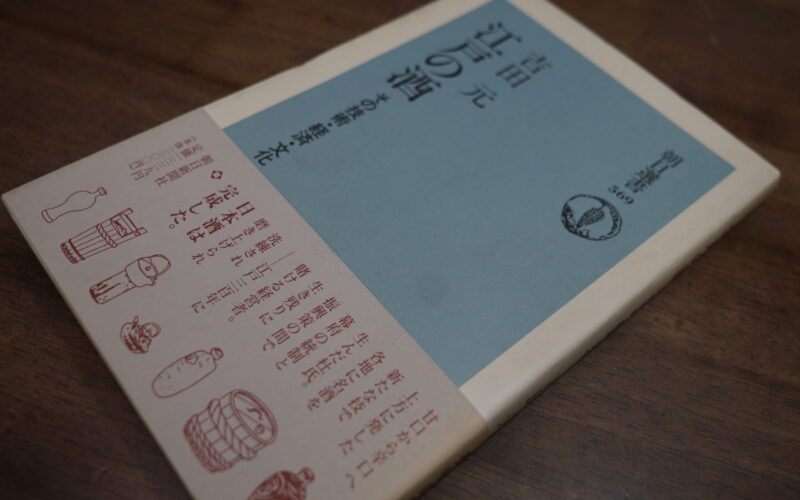 吉田 元
江戸の酒
その技術・経済・文化
朝日選書
569
甘口から辛口へ
上方に発した
新たな技で
各地に名酒を
生んだ杜氏。
幕府の統制と
振興策の間で
生き残りに
賭ける経営者。
──江戸三百年に
洗練され
磨き上げられ
日本酒は
完成した。
朝日新聞社